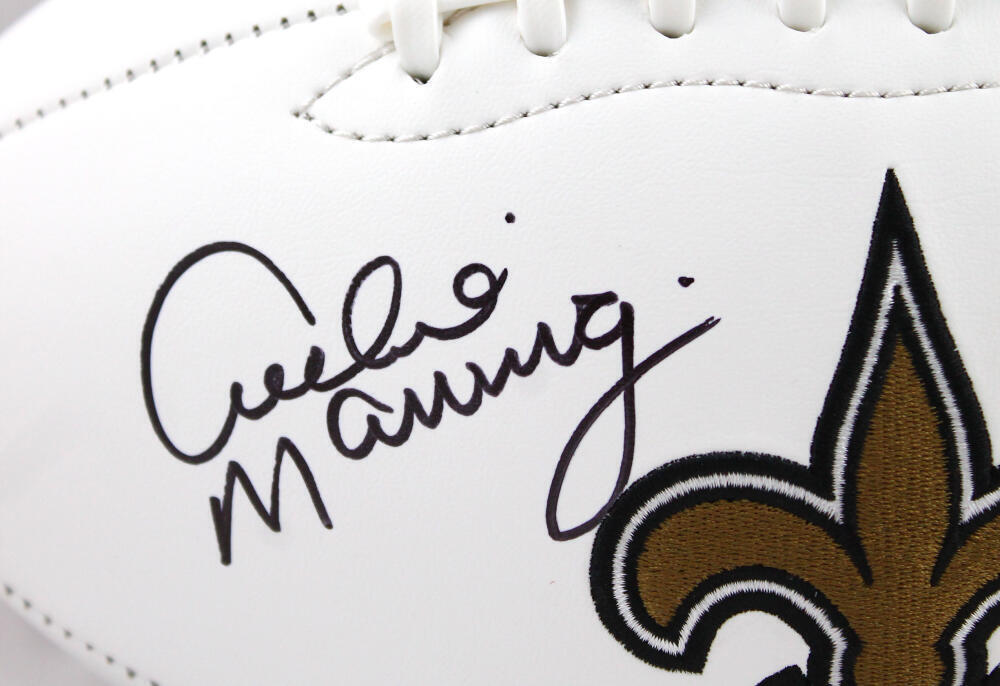 Archie
Manning